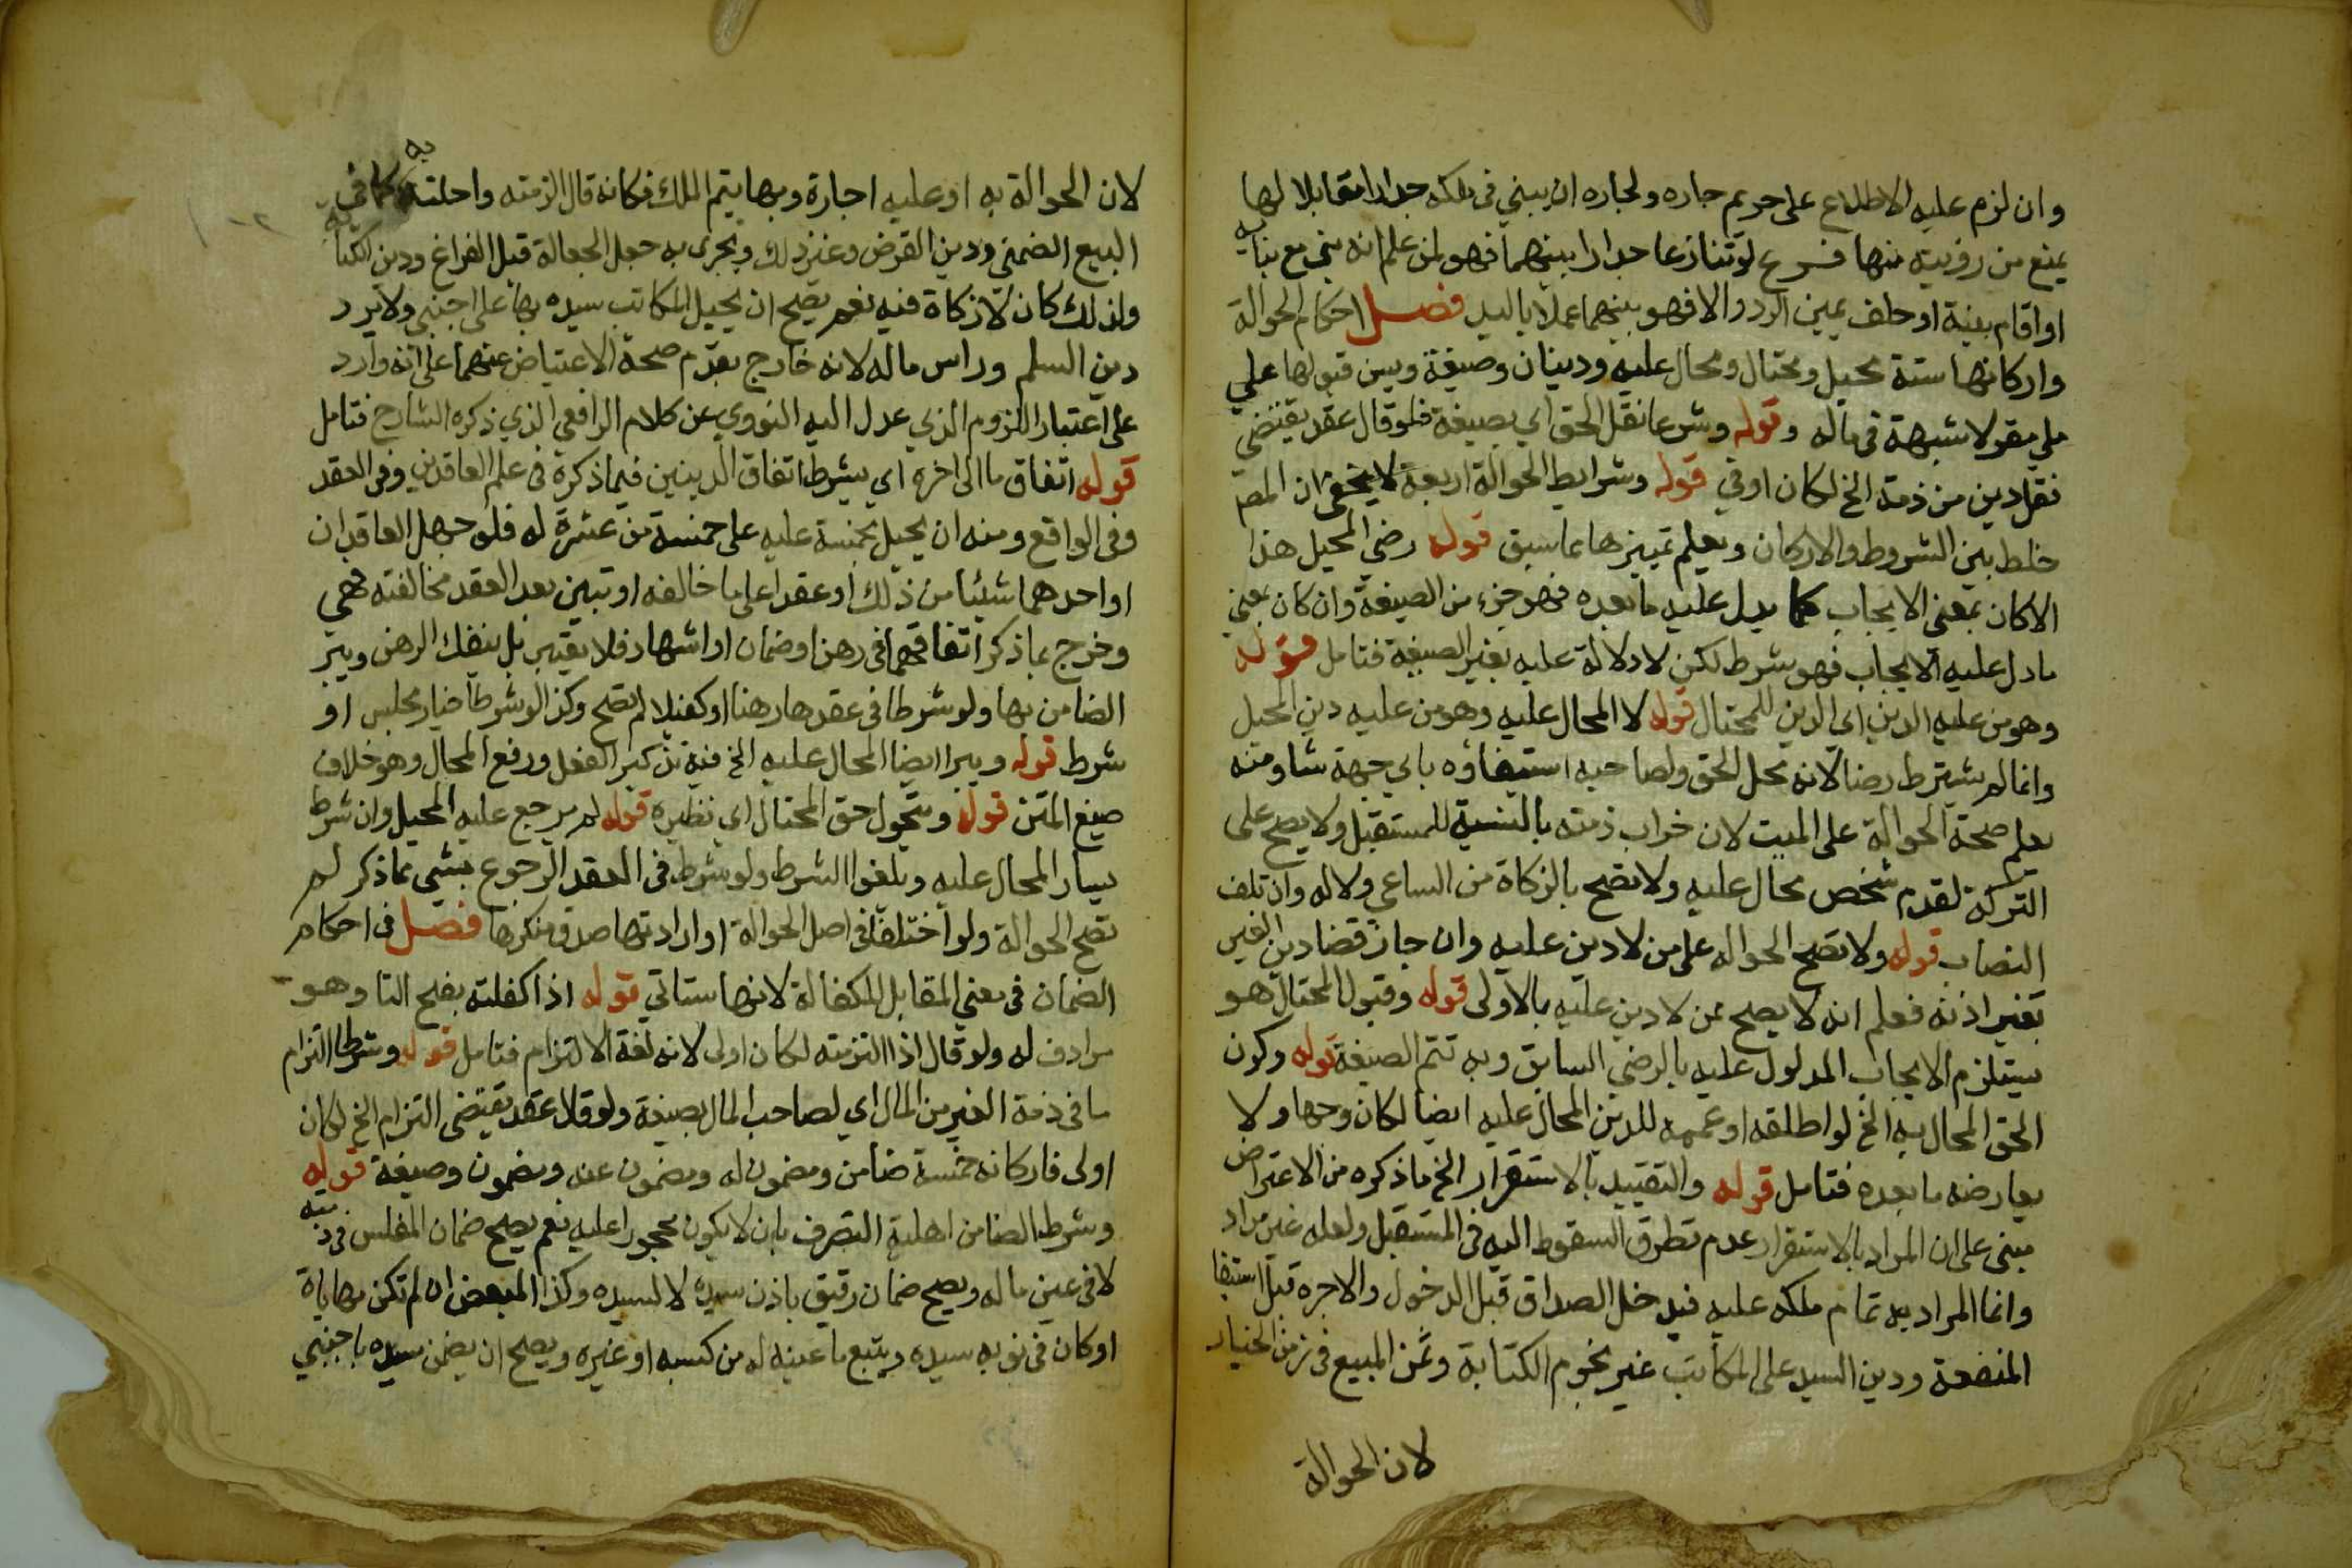 وان لزم عليه الاطلاع على حريم جاره ولجاره ان يبني في ملكه جدارا مقابلا لها
يمنع من رؤيته منها فرع لو تنازعا جدارا بينهما فهو لمن علم انه بني مع بنائه
او اقام بينة او حلف يمين الرد والا فهو بينهما عملا باليد فصل احكام الحوالة
واركانها ستة محيل ومحتال ومحال عليه ودينان وصيغة ويسن قبولها علي
ملي مقر لا شبهة في ماله وقوله وشرعا نقل الحق اي بصيغة فلو قال عقد يقتضي
نقل دين من ذمة الخ لكان اوفي قوله وشرايط الحوالة اربعة لا يخفي ان المص
خلط بين الشروط والاركان ويعلم تمييزها مما سبق قوله رضي المحيل هذا
الاكان بمعني الايجاب كما يدل عليه ما بعده فهو جزء من الصيغة وان كان بمعني
ما دل عليه الايجاب فهو شرط لكن لا دلالة عليه بغير الصيغة فتامل قوله
وهو من عليه الدين اي الدين للمحتال قوله لا المحال عليه وهو من عليه دين المحيل
وانما لم يشترط رضا لانه محل الحق ولصاحبه استيفاؤه باي جهة شا ومنه
يعلم صحة الحوالة على الميت لان خراب ذمته بالنسبة للمستقبل ولا يصح على
التركة لعدم شخص محال عليه ولا تصح بالزكاة من الساعي ولا له وان تلف
النصاب قوله ولا تصح الحواله على من لا دين عليه وان جاز قضا دين الغير
بغير اذنه فعلم انه لا يصح عن لا دين عليه بالاولى قوله وقبول المحتال هو
يستلزم الايجاب المدلول عليه بالرضي السابق وبه تتم الصيغة قوله وكون
الحق المحال به الخ لو اطلقه او عممه للدين المحال عليه ايضا لكان وجها ولا
يعارضه ما بعده فتامل قوله والتقييد بالاستقرار الخ ما ذكره من الاعتراض
مبنى على ان المراد بالاستقرار عدم تطرق السقوط اليه في المستقبل ولعله غير مراد
وانما المراد به تمام ملكه عليه فيدخل الصداق قبل الدخول والاجره قبل استيفا
المنفعة ودين السيد على المكاتب غير نجوم الكتابة وثمن المبيع في زمن الخيار
لان الحوالة
لان الحوالة به او عليه اجازة وبها يتم الملك فكانه قال الزمته واحلته به كما في
البيع الضمني ودين القرض وغير ذلك ويجرى به جعل الجعالة قبل الفراغ ودين الكتابة
ولذلك كان لا زكاة فيه نعم يصح ان يحيل المكاتب سيده بها على اجنبي ولا يرد
دين السلم وراس ماله لانه خارج بعدم صحة الاعتياض عنهما على انه وارد
على اعتبار اللزوم الذي عدل اليه النووي عن كلام الرافعي الذي ذكره الشارح فتامل
قوله اتفاق ما الى اخره اي يشرط اتفاق الدينين فيما ذكره في علم العاقدين وفي العقد
وفي الواقع ومنه ان يحيل بخمسة عليه على خمسة من عشرة له فلو جهل العاقدان
او احدهما شيئا من ذلك او عقدا على ما خالفه او تبين بعد العقد مخالفته فهي
وخرج بما ذكر اتفاقهما في رهن او ضمان او اشهاد فلا يعتبر بل ينفك الرهن ويبر
الضامن بها ولو شرطا في عقدها رهنا او كفيلا لم تصح وكذا لو شرطا خيار مجلس او
شرط قوله ويبرا ايضا المحال عليه الخ فيه تذكير الفعل ورفع المحال وهو خلاف
صيغ المتن قوله ويتحول حق المحتال اي نظيره قوله لم يرجع عليه المحيل وان شرط
يسار المحال عليه ويلغوا الشرط ولو شرط في العقد الرجوع بشي مما ذكر لم
تصح الحوالة ولو اختلفا في اصل الحوالة او ارادتها صدق منكرها فصل في احكام
الضمان في معني المقابل للكفالة لانها ستاتي قوله اذا كفلته بفتح التا وهو
مرادف له ولو قال اذا التزمته لكان اولى لانه لغة الالتزام فتامل قوله وشرطا التزام
ما في ذمة الغير من المال اي لصاحب المال بصيغة ولو قال عقد يقتضي التزام الخ لكان
اولى فاركانه خمسة ضامن ومضمون له ومضمون عنه ومضمون وصيغة قوله
وشرط الضامن اهلية التصرف بان لا يكون محجورا عليه نعم يصح ضمان المفلس في ذمته
لا في عين ماله ويصح ضمان رقيق باذن سيده لا لسيده وكذا المبعض ان لم تكن مهاياة
او كان في نوبه سيده ويتبع ما عينه له من كسبه او غيره ويصح ان يضمن سيده باجنبي